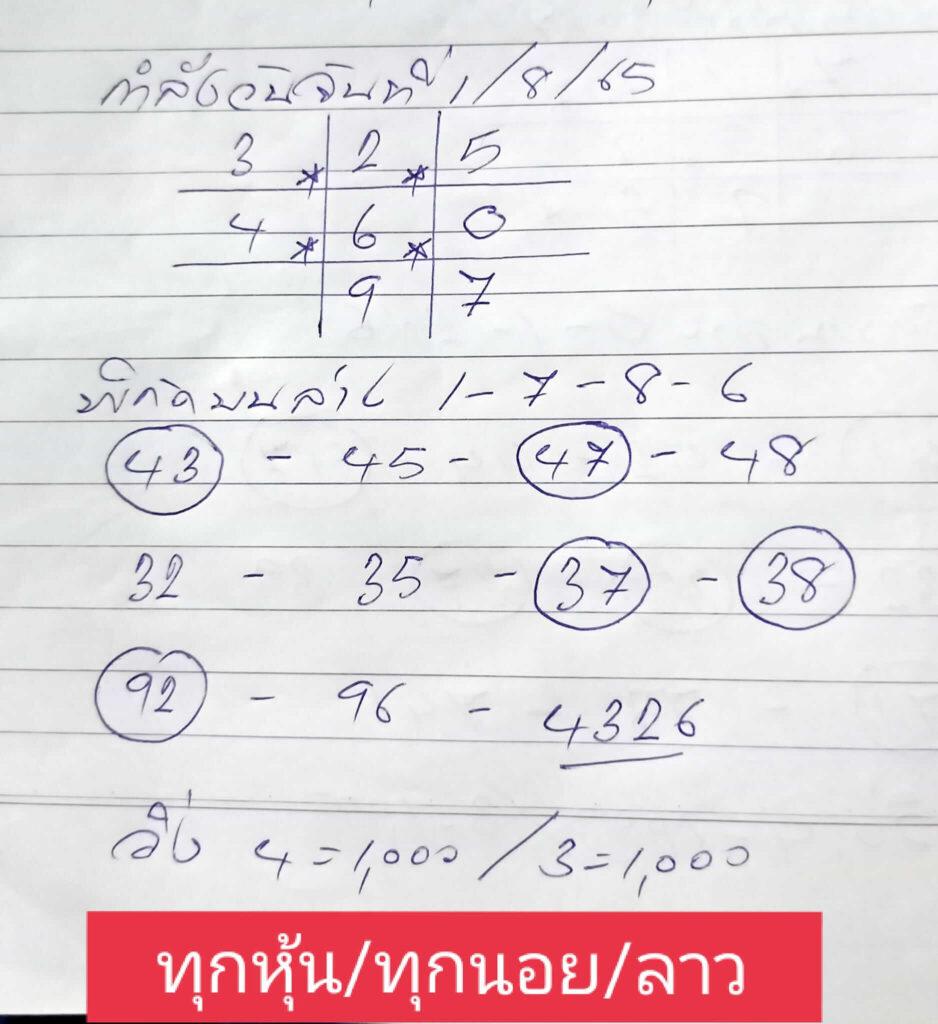 กำลังวันจันทร์ที่ 1/8/65
3 * 2 * 5
4 * 6 * 0
9 7
พิกัดบนล่าง 1-7-8-6
43 - 45 - 47 - 48
32 - 35 - 37 - 38
92 - 96 - 4326
วิ่ง 4=1,000/3=1,000
ทุกหุ้น/ทุกนอย/ลาว